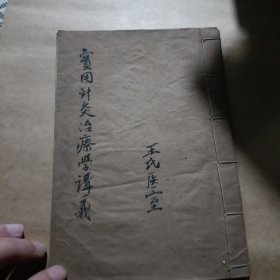 實用針灸治療學講義
王氏医室